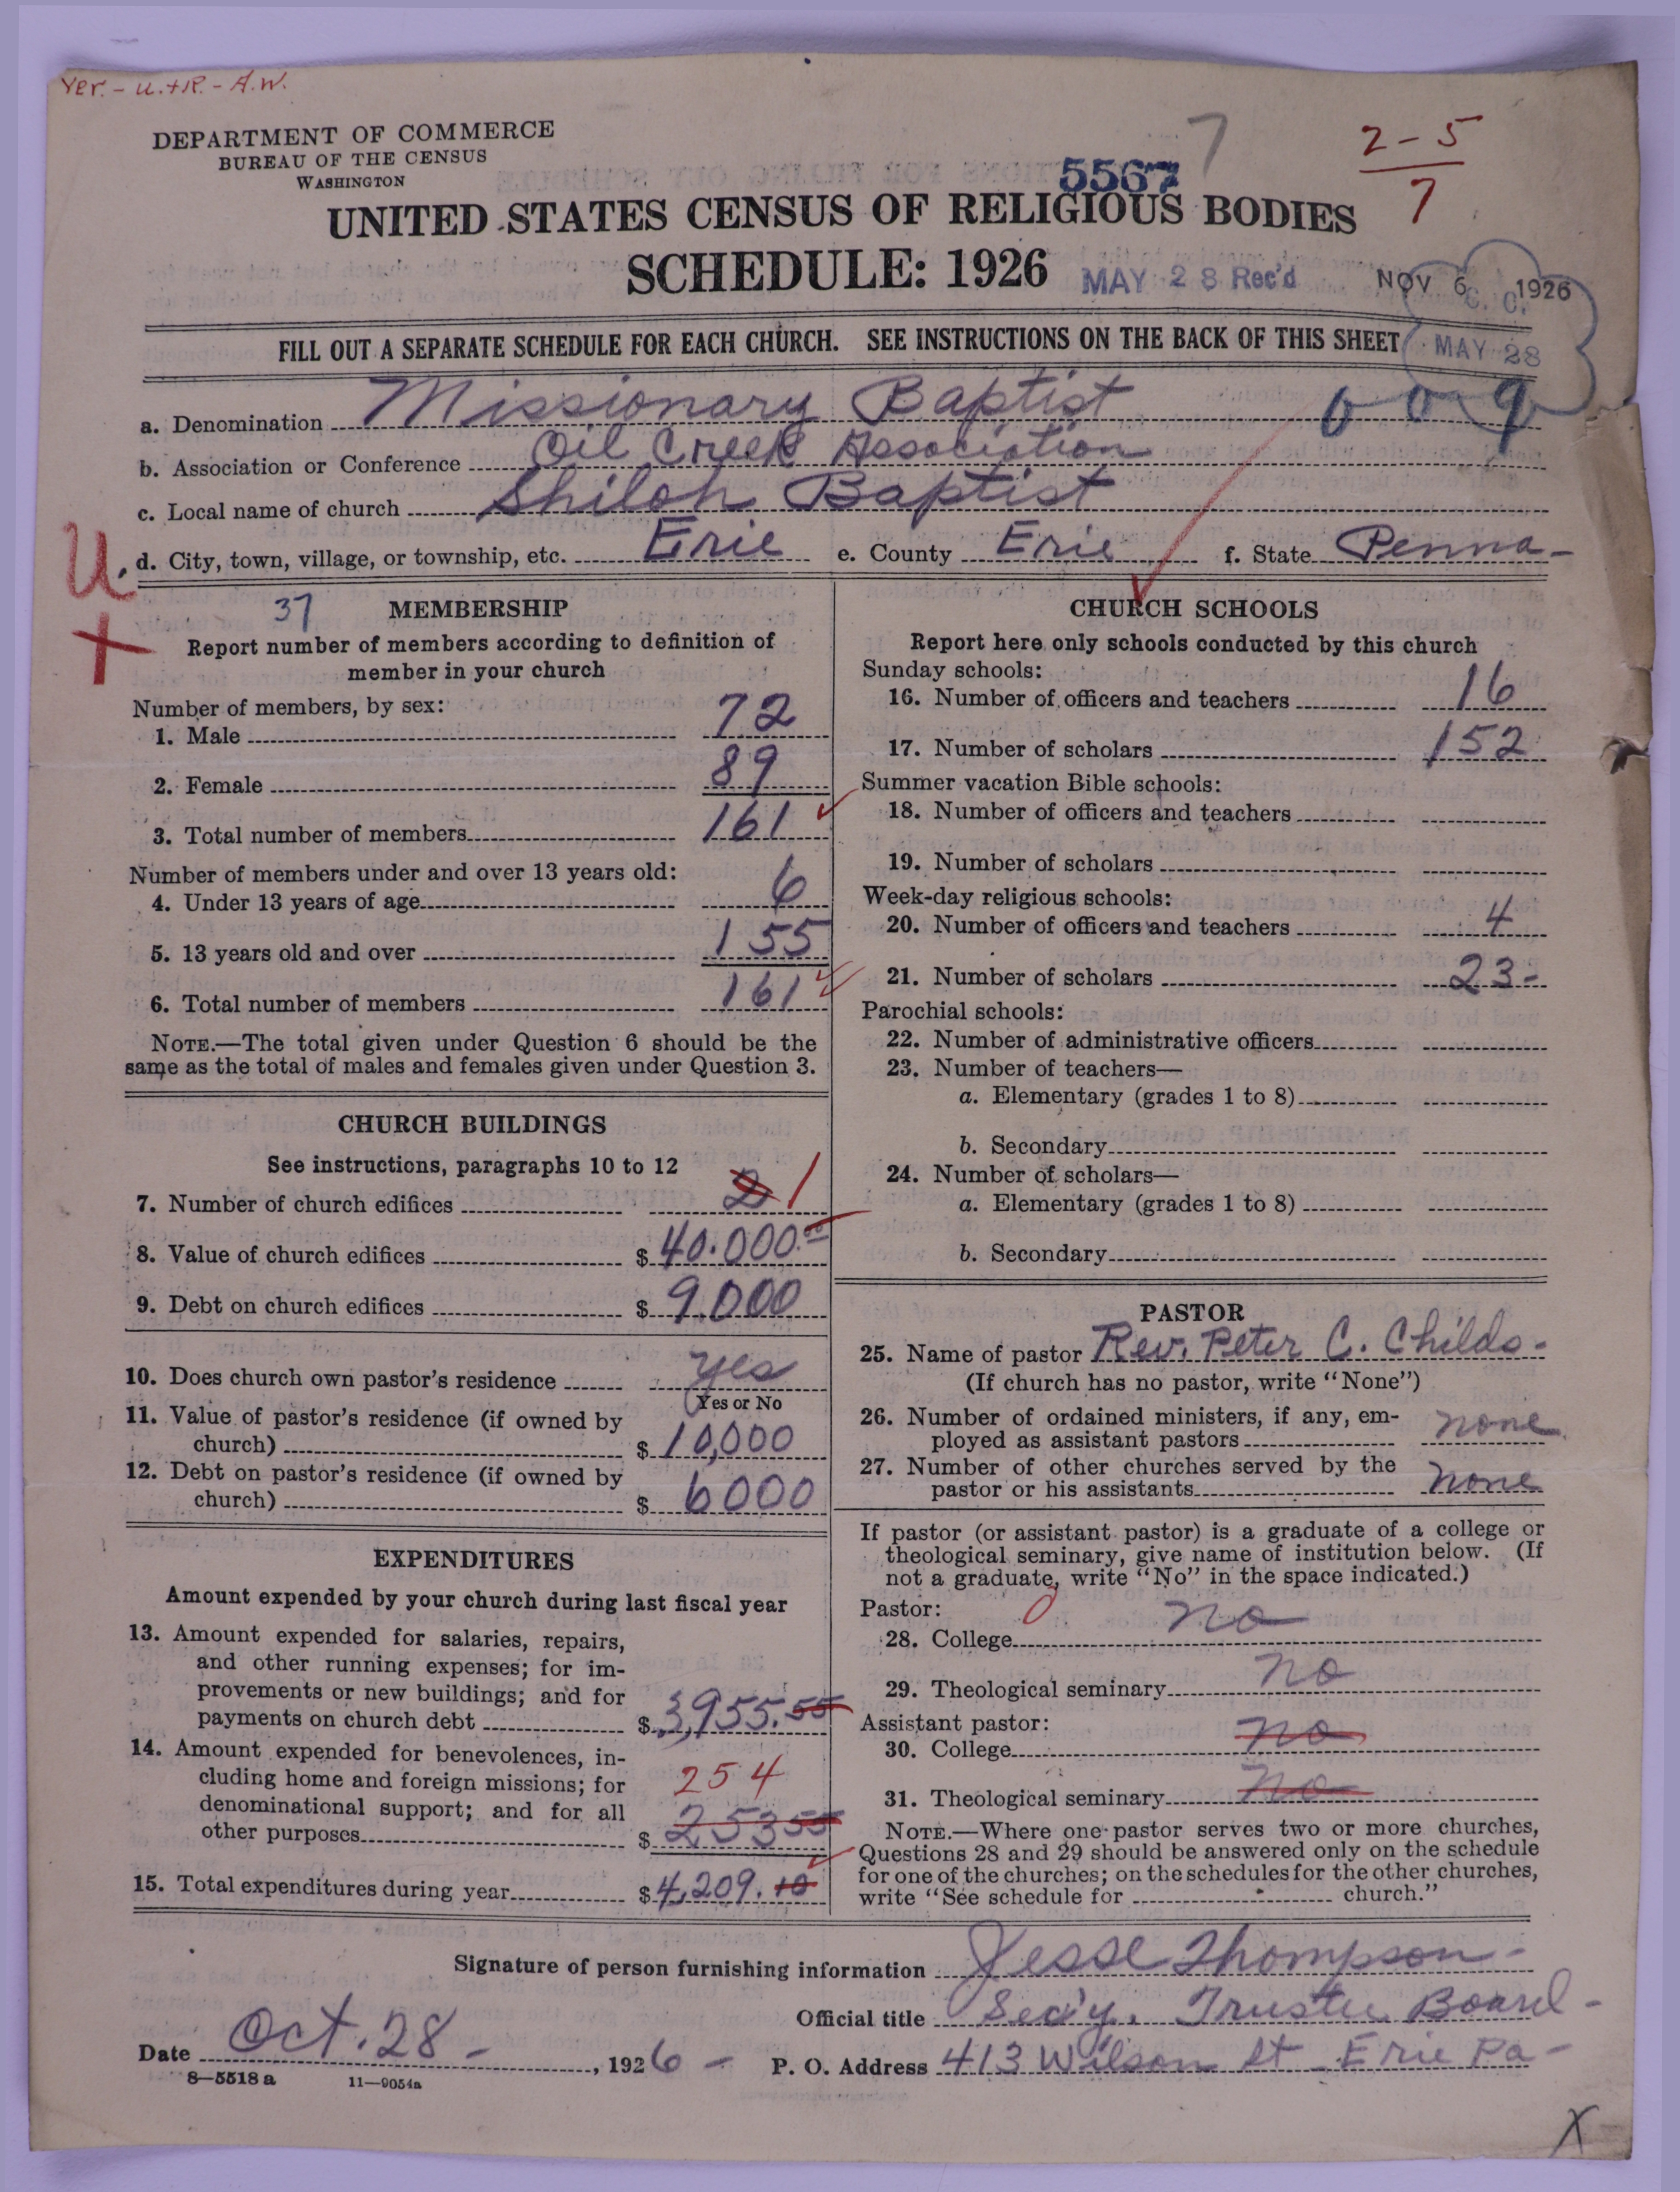 Ver. - U.+R. - A.W.
DEPARTMENT OF COMMERCE
BUREAU OF THE CENSUS
WASHINGTON
7
2-5
7
5567
UNITED STATES CENSUS OF RELIGIOUS BODIES
SCHEDULE: 1926
MAY 28 Rec'd
NOV 6 1926
C. C.
MAY 28
FILL OUT A SEPARATE SCHEDULE FOR EACH CHURCH. SEE INSTRUCTIONS ON THE BACK OF THIS SHEET
a. Denomination Missionary Baptist
009
b. Association or Conference Oil Creek Association
c. Local name of church Shiloh Baptist
d. City, town, village, or township, etc. Erie e. County Erie f. State Penna-
U.
+
37 MEMBERSHIP
Report number of members according to definition of
member in your church
Number of members, by sex:
1. Male 72
2. Female 89
3. Total number of members 161
Number of members under and over 13 years old:
4. Under 13 years of age 6
5. 13 years old and over 155
6. Total number of members 161
NOTE.—The total given under Question 6 should be the
same as the total of males and females given under Question 3.
CHURCH BUILDINGS
See instructions, paragraphs 10 to 12
7. Number of church edifices 2 1
8. Value of church edifices $ 40.000.00
9. Debt on church edifices $ 9.000
10. Does church own pastor's residence yes
Yes or No
11. Value of pastor's residence (if owned by
church) $ 10,000
12. Debt on pastor's residence (if owned by
church) $ 6000
EXPENDITURES
Amount expended by your church during last fiscal year
13. Amount expended for salaries, repairs,
and other running expenses; for im-
provements or new buildings; and for
payments on church debt $ 3,955.55
14. Amount expended for benevolences, in-
cluding home and foreign missions; for 254
denominational support; and for all
other purposes $ 253 55
15. Total expenditures during year $ 4,209.10
CHURCH SCHOOLS
Report here only schools conducted by this church
Sunday schools:
16. Number of officers and teachers 16
17. Number of scholars 152
Summer vacation Bible schools:
18. Number of officers and teachers
19. Number of scholars
Week-day religious schools:
20. Number of officers and teachers 4
21. Number of scholars 23-
Parochial schools:
22. Number of administrative officers
23. Number of teachers—
a. Elementary (grades 1 to 8)
b. Secondary
24. Number of scholars—
a. Elementary (grades 1 to 8)
b. Secondary
PASTOR
25. Name of pastor Rev. Peter C. Childs-
(If church has no pastor, write "None")
26. Number of ordained ministers, if any, em-
ployed as assistant pastors none
27. Number of other churches served by the
pastor or his assistants none
If pastor (or assistant pastor) is a graduate of a college or
theological seminary, give name of institution below. (If
not a graduate, write "No" in the space indicated.)
Pastor:
28. College no
29. Theological seminary no
Assistant pastor:
30. College no
31. Theological seminary no
NOTE.—Where one pastor serves two or more churches,
Questions 28 and 29 should be answered only on the schedule
for one of the churches; on the schedules for the other churches,
write "See schedule for church."
Signature of person furnishing information Jesse Thompson-
Official title Sec'y. Trustee Board-
Date Oct. 28 - , 1926 - P. O. Address 413 Wilson St Erie Pa-
8—5518 a 11—9054a
X